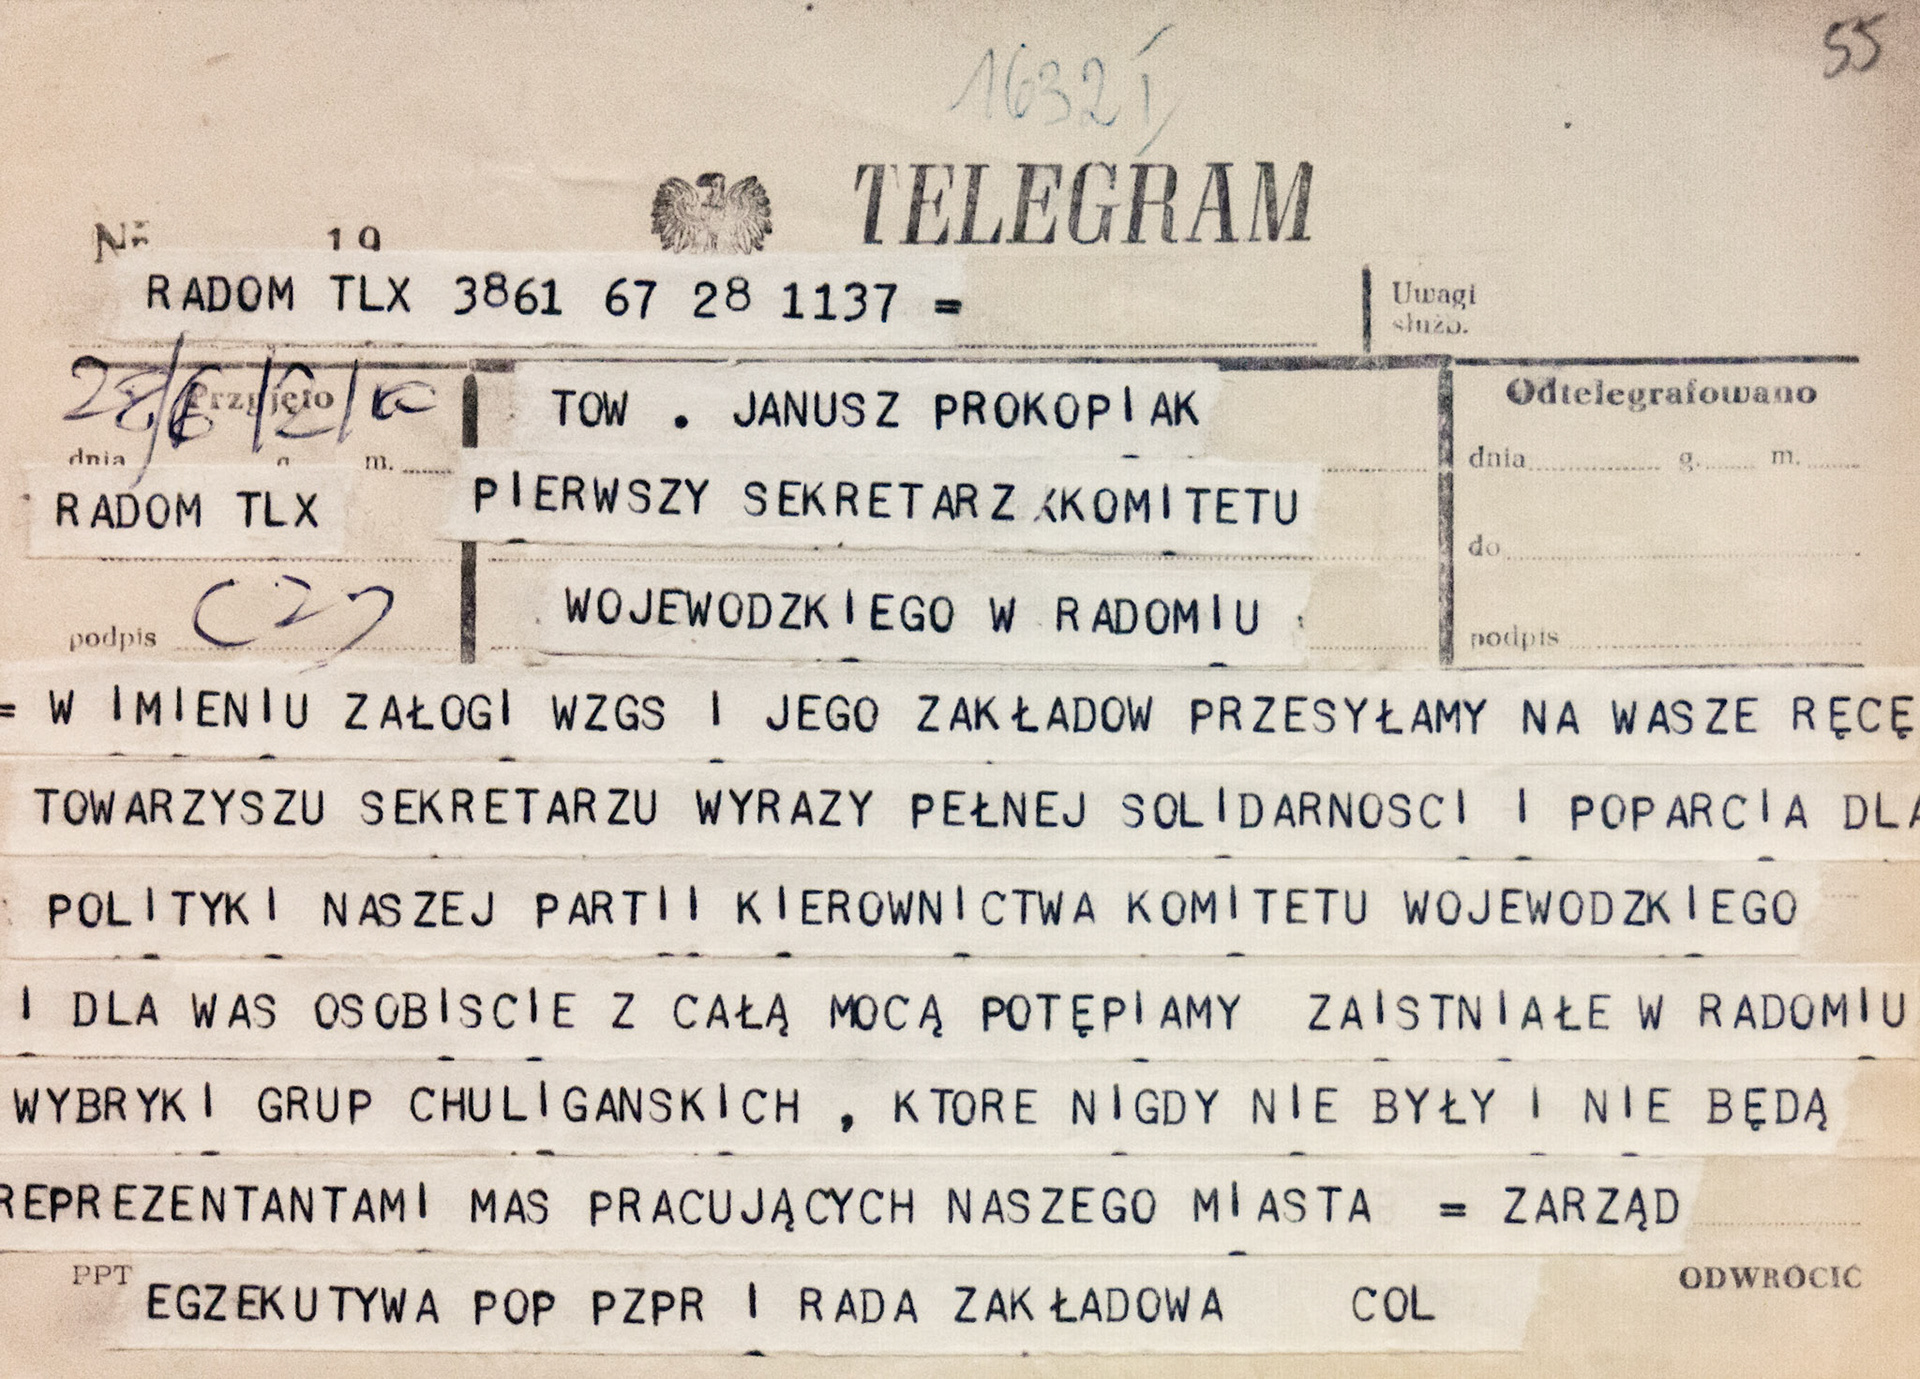 55
1632 I
TELEGRAM
Nr 19
RADOM TLX 3861 67 28 1137 =
Uwagi
służb.
Przyjęto
TOW . JANUSZ PROKOPIAK
Odtelegrafowano
dnia g. m.
dnia g. m.
RADOM TLX
PIERWSZY SEKRETARZ KOMITETU
do
WOJEWODZKIEGO W RADOMIU
podpis
podpis
= W IMIENIU ZAŁOGI WZGS I JEGO ZAKŁADOW PRZESYŁAMY NA WASZE RĘCĘ
TOWARZYSZU SEKRETARZU WYRAZY PEŁNEJ SOLIDARNOSCI I POPARCIA DLA
POLITYKI NASZEJ PARTII KIEROWNICTWA KOMITETU WOJEWODZKIEGO
I DLA WAS OSOBISCIE Z CAŁĄ MOCĄ POTĘPIAMY ZAISTNIAŁE W RADOMIU
WYBRYKI GRUP CHULIGANSKICH , KTORE NIGDY NIE BYŁY I NIE BĘDĄ
REPREZENTANTAMI MAS PRACUJĄCYCH NASZEGO MIASTA = ZARZĄD
PPT
ODWRÓCIĆ
EGZEKUTYWA POP PZPR I RADA ZAKŁADOWA COL